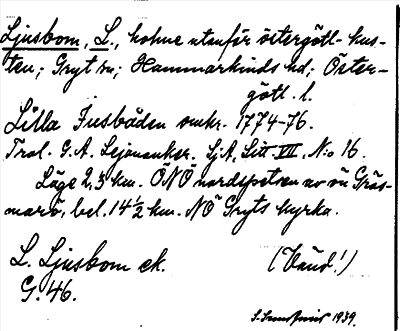 Ljusbom, L., holme utanför östergötl. kus-
ten; Gryt sn; Hammarkinds hd; Öster-
götl. l.
Lilla Fusbåden omkr. 1774-76.
Trol. G.A. Lejonanker. SjA, Litt VII, N:o 16.
Läge 2,3 km. ÖNÖ nordspetsen av ön Gräs-
marö, bel. 14 1/2 km. NÖ Gryts kyrka.
L. Ljusbom ek. (Vänd!)
G. 46.
1939.